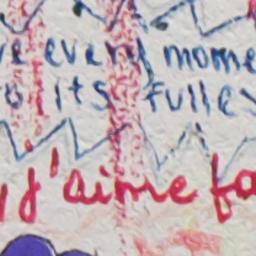 every mome
its fulle
j'aime fa